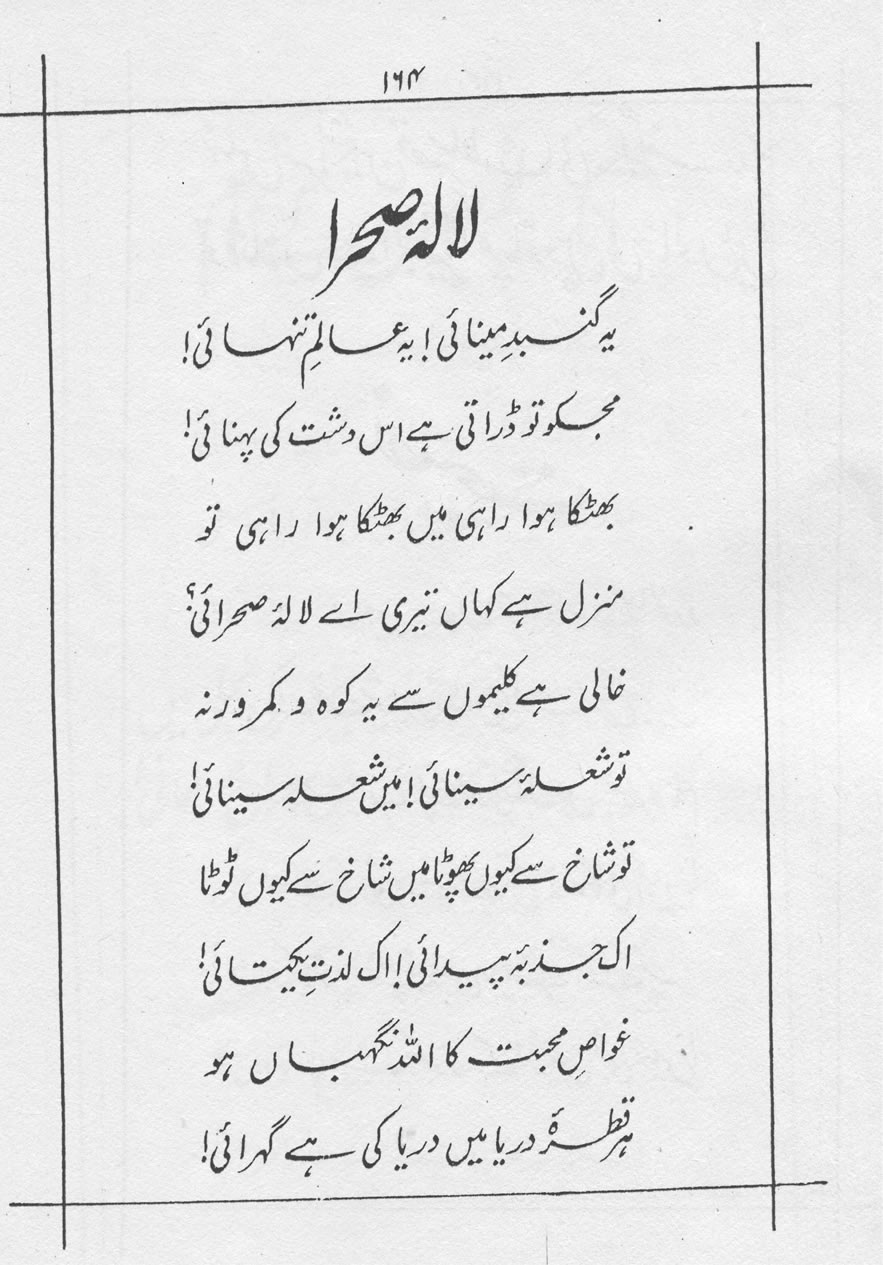 ۱۶۴
لالۂ صحرا
یہ گنبدِ مینائی! یہ عالمِ تنہائی!
مجکو تو ڈراتی ہے اس دشت کی پہنائی!
بھٹکا ہوا راہی میں بھٹکا ہوا راہی تو
منزل ہے کہاں تیری اے لالۂ صحرائی؟
خالی ہے کلیموں سے یہ کوہ و کمر ورنہ
تو شعلۂ سینائی! میں شعلۂ سینائی!
تو شاخ سے کیوں پھوٹا میں شاخ سے کیوں ٹوٹا
اک جذبۂ پیدائی! اک لذتِ یکتائی!
غواصِ محبت کا اللہ نگہباں ہو
ہر قطرۂ دریا میں دریا کی ہے گہرائی!